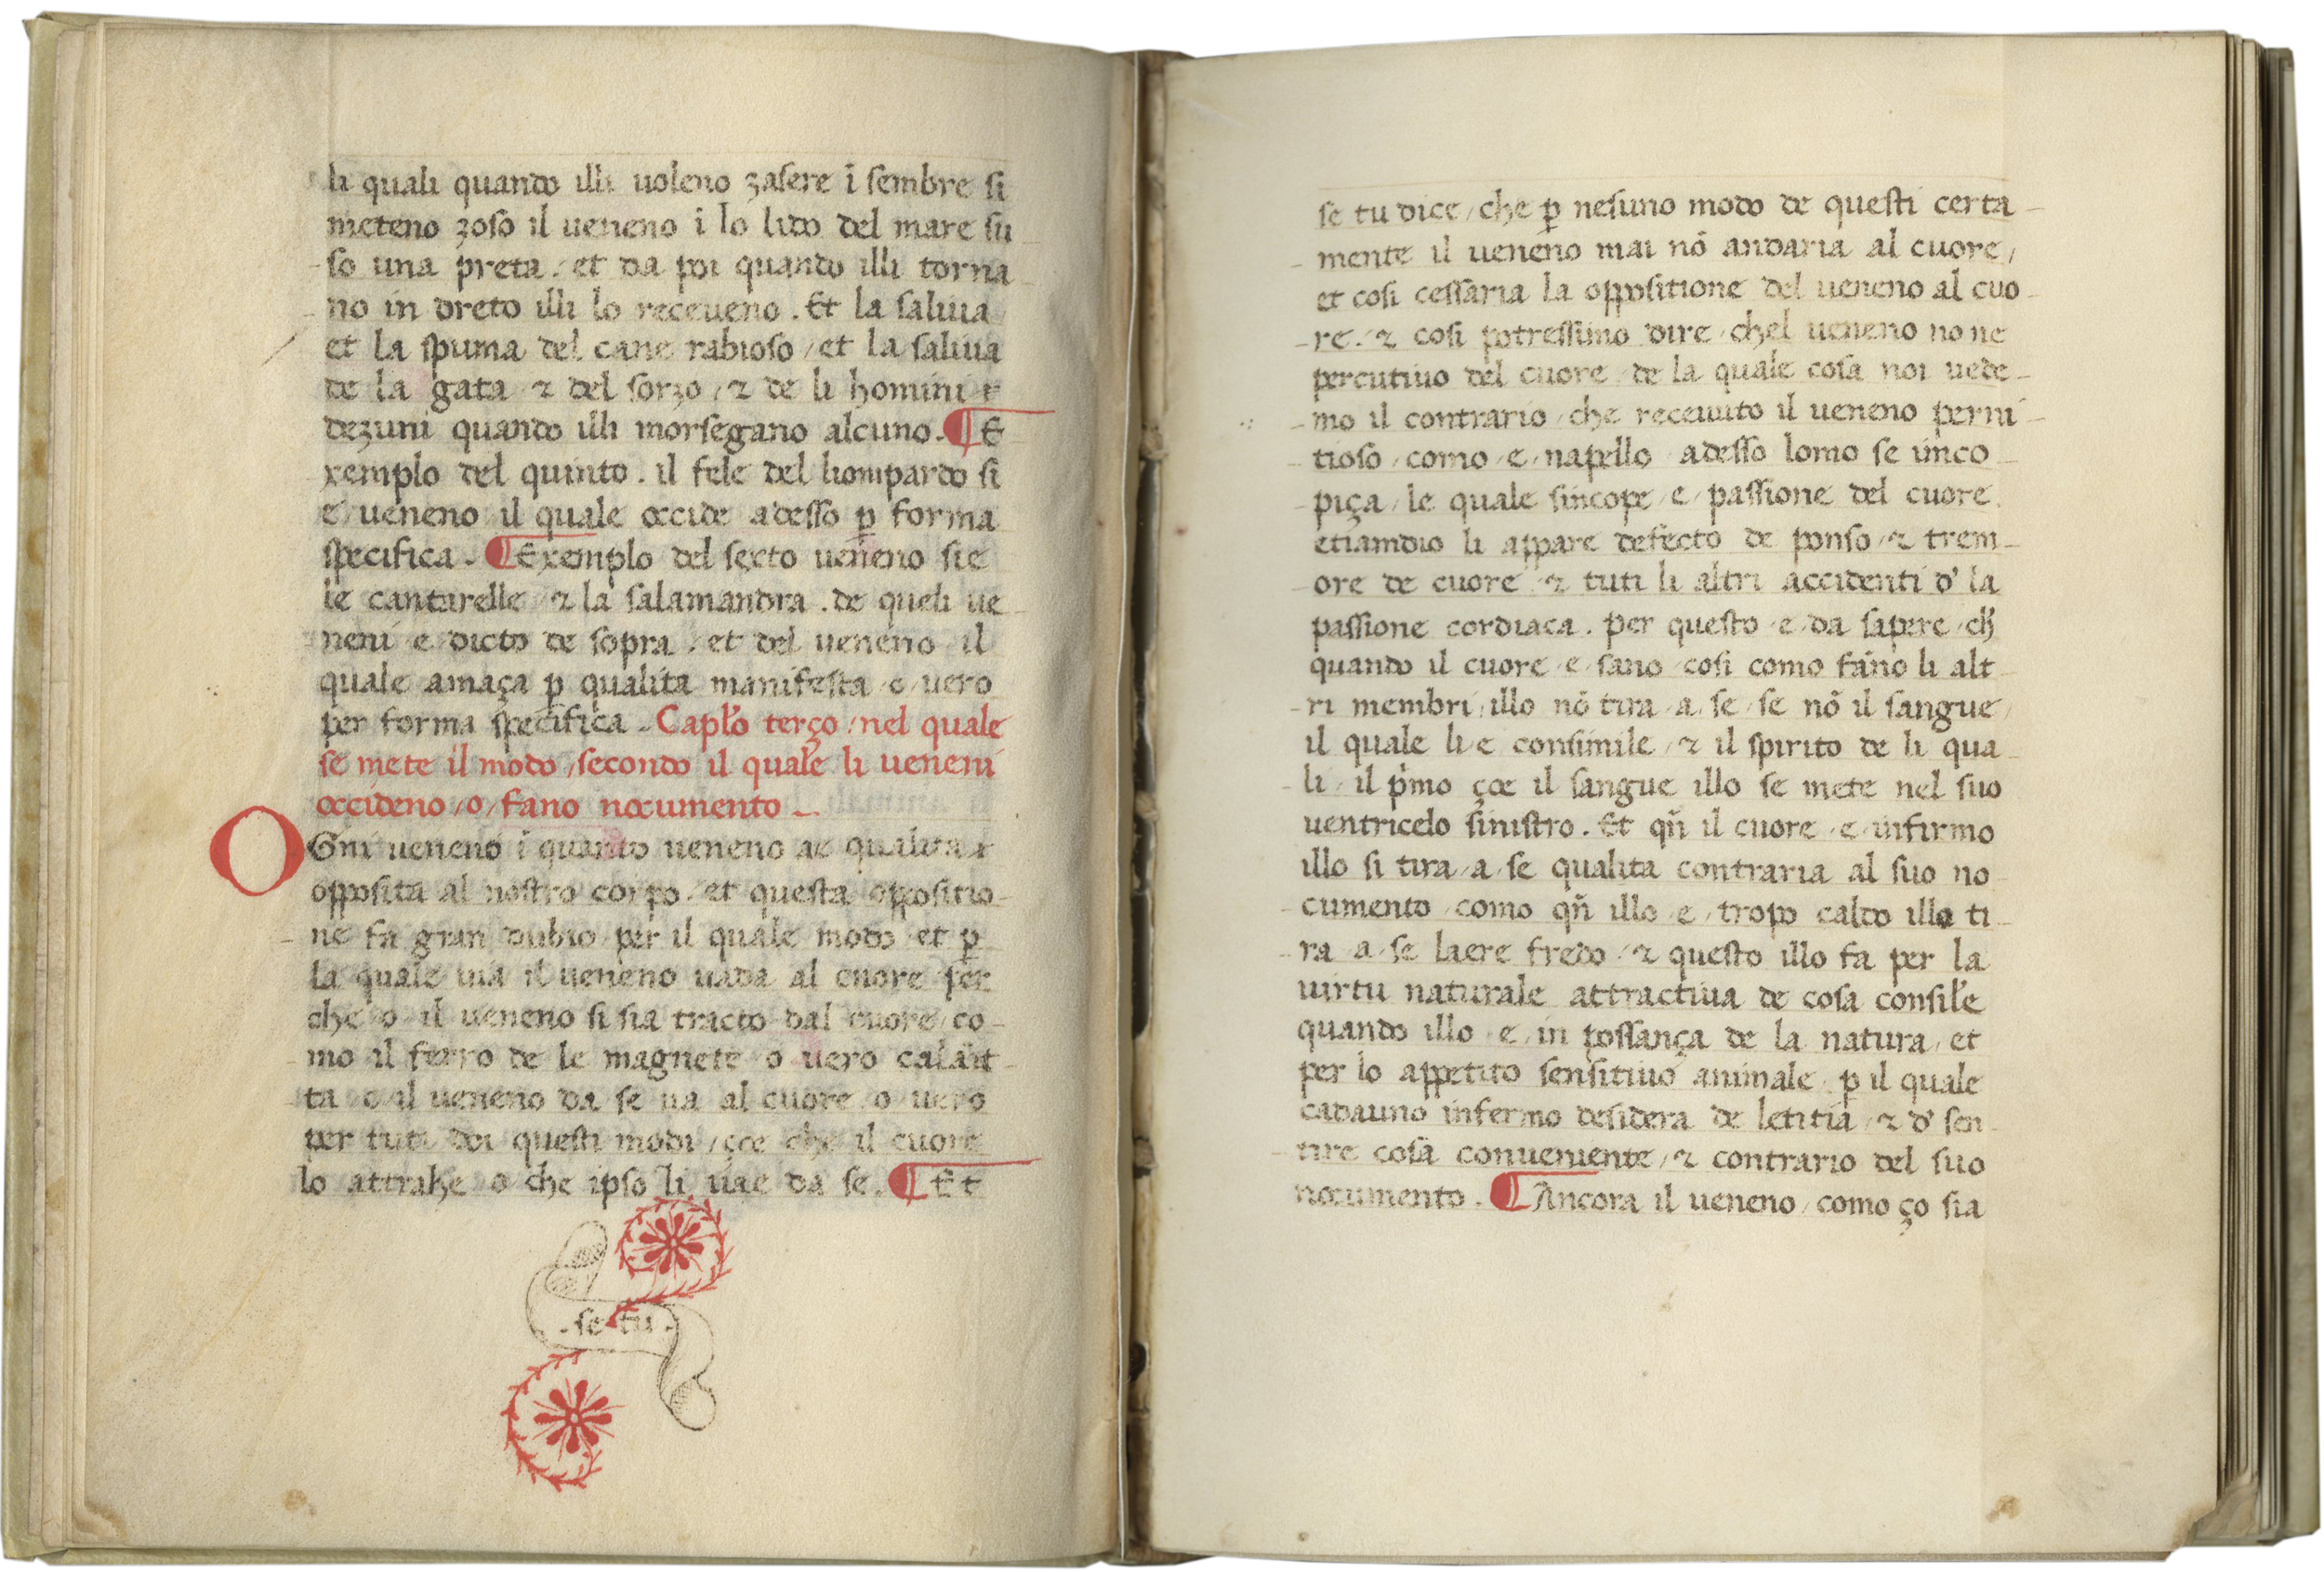 li quali quando illi uoleno zasere ī sembre si
meteno zoso il ueneno ī lo lido del mare su
so una preta. et da poi quando illi torna
no in dreto illi lo receueno. Et la saliua
et la spuma del cane rabioso / et la saliua
de la gata ⁊ del sorzo / ⁊ de li homini
dezuni quando illi morsegano alcuno. ¶ E
xemplo del quinto. il fele del liompardo si
e ueneno il quale occide adesso ꝑ forma
specifica. ¶ Exemplo del sexto ueneno sie
le cantarelle / ⁊ la salamandra. de queli ue
neni e dicto de sopra. et del ueneno il
quale amaça ꝑ qualita manifesta o uero
per forma specifica. Capl'o terço / nel quale
se mete il modo / secondo il quale li ueneni
occideno / o / fano nocumento
OGni ueneno ī quanto ueneno ae qualita
opposita al nostro corpo. et questa oppositio
ne fa gran dubio per il quale modo et ꝑ
la quale uia il ueneno uada al cuore per
che o il ueneno si sia tracto dal cuore / co
mo il ferro de le magnete o uero calāit
ta o il ueneno da se ua al cuore o uero
per tuti doi questi modi / çoe che il cuore
lo attrahe o che ipso li uae da se. ¶ Et
. se tu .
se tu dice / che ꝑ nesuno modo de questi certa
mente il ueneno mai nō andaria al cuore /
et cosi cessaria la oppositione del ueneno al cuo
re. ⁊ cosi potressimo dire / chel ueneno no ne
percutiuo del cuore / de la quale cosa noi uede
mo il contrario / che receuuto il ueneno perni
tioso / como / e / napello adesso lomo se inco
piça / le quale sincope / e / passione del cuore.
etiamdio li appare defecto de ponso / ⁊ trem
ore de cuore ⁊ tuti li altri accidenti d' la
passione cordiaca. per questo / e / da sapere / ch'
quando il cuore / e / sano / cosi como fano li alt
ri membri / illo nō tira / a / se / se nō il sangue /
il quale li e consimile / ⁊ il spirito de li qua
li / il p'mo çoe il sangue illo se mete nel suo
uentricelo sinistro. Et qn̄ il cuore / e / infirmo
illo si tira / a / se qualita contraria al suo no
cumento / como qn̄ illo / e / tropo caldo illo ti
ra / a / se laere fredo / ⁊ questo illo fa per la
uirtu naturale attractiua de cosa consil'e
quando illo / e / in possança de la natura / et
per lo appetito sensitiuo animale / ꝑ il quale
cadauno infermo desidera de letitia / ⁊ d' sen
tire cosa conueniente / ⁊ contrario del suo
nocumento. ¶ Ancora il ueneno / como ço sia